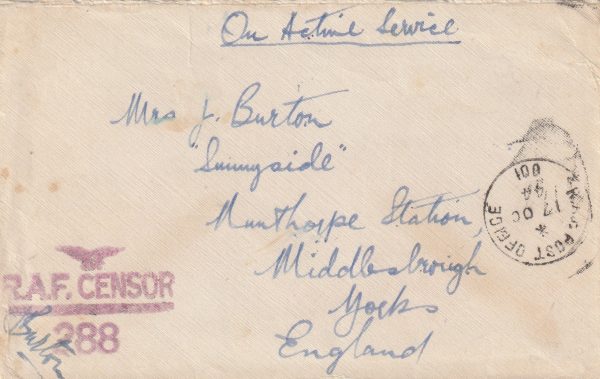 On Active Service
Mrs J. Burton
"Sunnyside"
Nunthorpe Station,
Middlesbrough
Yorks
England
R.A.F. CENSOR
288
Burton
POST OFFICE
17 OC
44
001